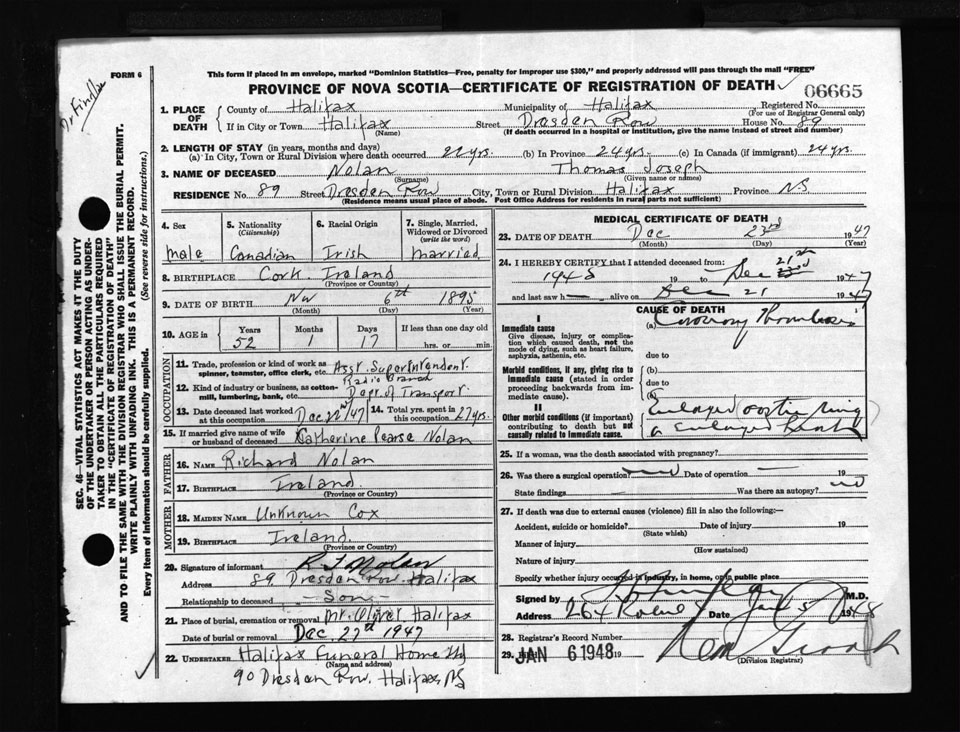 FORM 6
This form if placed in an envelope, marked "Dominion Statistics—Free, penalty for improper use $300," and properly addressed will pass through the mail "FREE"
PROVINCE OF NOVA SCOTIA—CERTIFICATE OF REGISTRATION OF DEATH ✓ 06665
1. PLACE OF DEATH
County of Halifax Municipality of Halifax Registered No.
(For use of Registrar General only)
If in City or Town Halifax Street Dresden Row House No. 89
(Name) (If death occurred in a hospital or institution, give the name instead of street and number)
2. LENGTH OF STAY (in years, months and days)
(a) In City, Town or Rural Division where death occurred 22 yrs. (b) In Province 24 yrs. (c) In Canada (if immigrant) 24 yrs.
3. NAME OF DECEASED Nolan Thomas Joseph
(Surname) (Given name or names)
RESIDENCE No. 89 Street Dresden Row City, Town or Rural Division Halifax Province N.S.
(Residence means usual place of abode. Post Office Address for residents in rural parts not sufficient)
4. Sex 5. Nationality (Citizenship) 6. Racial Origin 7. Single, Married, Widowed or Divorced (write the word)
male Canadian Irish married
8. BIRTHPLACE Cork. Ireland
(Province or Country)
9. DATE OF BIRTH Nov 6th 1895
(Month) (Day) (Year)
10. AGE in Years Months Days If less than one day old
52 1 17 hrs. or min.
OCCUPATION
11. Trade, profession or kind of work as spinner, teamster, office clerk, etc. Asst. Superintendent.
12. Kind of industry or business, as cotton-mill, lumbering, bank, etc. Radio Branch Dept. of Transport.
13. Date deceased last worked at this occupation Dec 1947 14. Total yrs. spent in this occupation 27 yrs.
15. If married give name of wife or husband of deceased Catherine Pearse Nolan
FATHER
16. NAME Richard Nolan
17. BIRTHPLACE Ireland
(Province or Country)
MOTHER
18. MAIDEN NAME Unknown Cox
19. BIRTHPLACE Ireland.
(Province or Country)
20. Signature of informant R J Nolan
Address 89 Dresden Row. Halifax
Relationship to deceased Son
21. Place of burial, cremation or removal Mt. Olivet Halifax
Date of burial or removal Dec. 27th 1947
22. UNDERTAKER Halifax Funeral Home Ltd
(Name and address)
90 Dresden Row. Halifax, NS
MEDICAL CERTIFICATE OF DEATH
23. DATE OF DEATH Dec 23rd 1947
(Month) (Day) (Year)
24. I HEREBY CERTIFY that I attended deceased from:
1945 19 to Dec 21st 1947
and last saw h alive on Dec 21 1947
CAUSE OF DEATH
I
Immediate cause (a) Coronary Thrombosis
Give disease, injury or complication which caused death, not the mode of dying, such as heart failure, asphyxia, asthenia, etc.
due to
Morbid conditions, if any, giving rise to immediate cause (stated in order proceeding backwards from immediate cause).
(b)
due to
(c)
II
Other morbid conditions (if important) contributing to death but not causally related to immediate cause.
Enlarged aortic ring
Enlarged heart
25. If a woman, was the death associated with pregnancy?
26. Was there a surgical operation? no Date of operation — 19
State findings Was there an autopsy? no
27. If death was due to external causes (violence) fill in also the following:—
Accident, suicide or homicide? Date of injury 19
(State which)
Manner of injury
(How sustained)
Nature of injury
Specify whether injury occurred in industry, in home, or in public place
Signed by M.D.
Address 264 Date Jan 5 1948
28. Registrar's Record Number
29. JAN 6 1948 19
(Division Registrar)
SEC. 46—VITAL STATISTICS ACT MAKES IT THE DUTY OF THE UNDERTAKER OR PERSON ACTING AS UNDERTAKER TO OBTAIN ALL THE PARTICULARS REQUIRED IN THE "CERTIFICATE OF REGISTRATION OF DEATH"
AND TO FILE THE SAME WITH THE DIVISION REGISTRAR WHO SHALL ISSUE THE BURIAL PERMIT.
WRITE PLAINLY WITH UNFADING INK. THIS IS A PERMANENT RECORD.
Every item of Information should be carefully supplied. (See reverse side for instructions.)